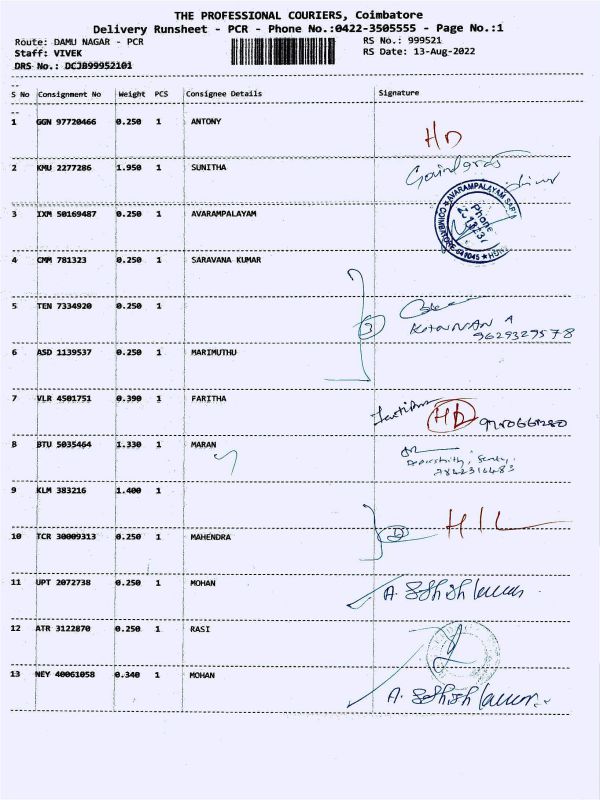 THE PROFESSIONAL COURIERS, Coimbatore
Delivery Runsheet - PCR - Phone No.:0422-3505555 - Page No.:1
Route: DAMU NAGAR - PCR RS No.: 999521
Staff: VIVEK RS Date: 13-Aug-2022
DRS No.: DCJB99952101
S No Consignment No Weight PCS Consignee Details Signature
1 GGN 97720466 0.250 1 ANTONY HD
2 KMU 2277286 1.950 1 SUNITHA
3 IXM 50169487 0.250 1 AVARAMPALAYAM
4 CMM 781323 0.250 1 SARAVANA KUMAR
5 TEN 7334920 0.250 1
3 KANNAN A
9629329578
6 ASD 1139537 0.250 1 MARIMUTHU
7 VLR 4501751 0.390 1 FARITHA HD
8 BTU 5035464 1.330 1 MARAN
7842316483
9 KLM 383216 1.400 1
10 TCR 30009313 0.250 1 MAHENDRA
11 UPT 2072738 0.250 1 MOHAN A. Sathish kumar
12 ATR 3122870 0.250 1 RASI
13 NEY 40061058 0.340 1 MOHAN A. Sathish kumar